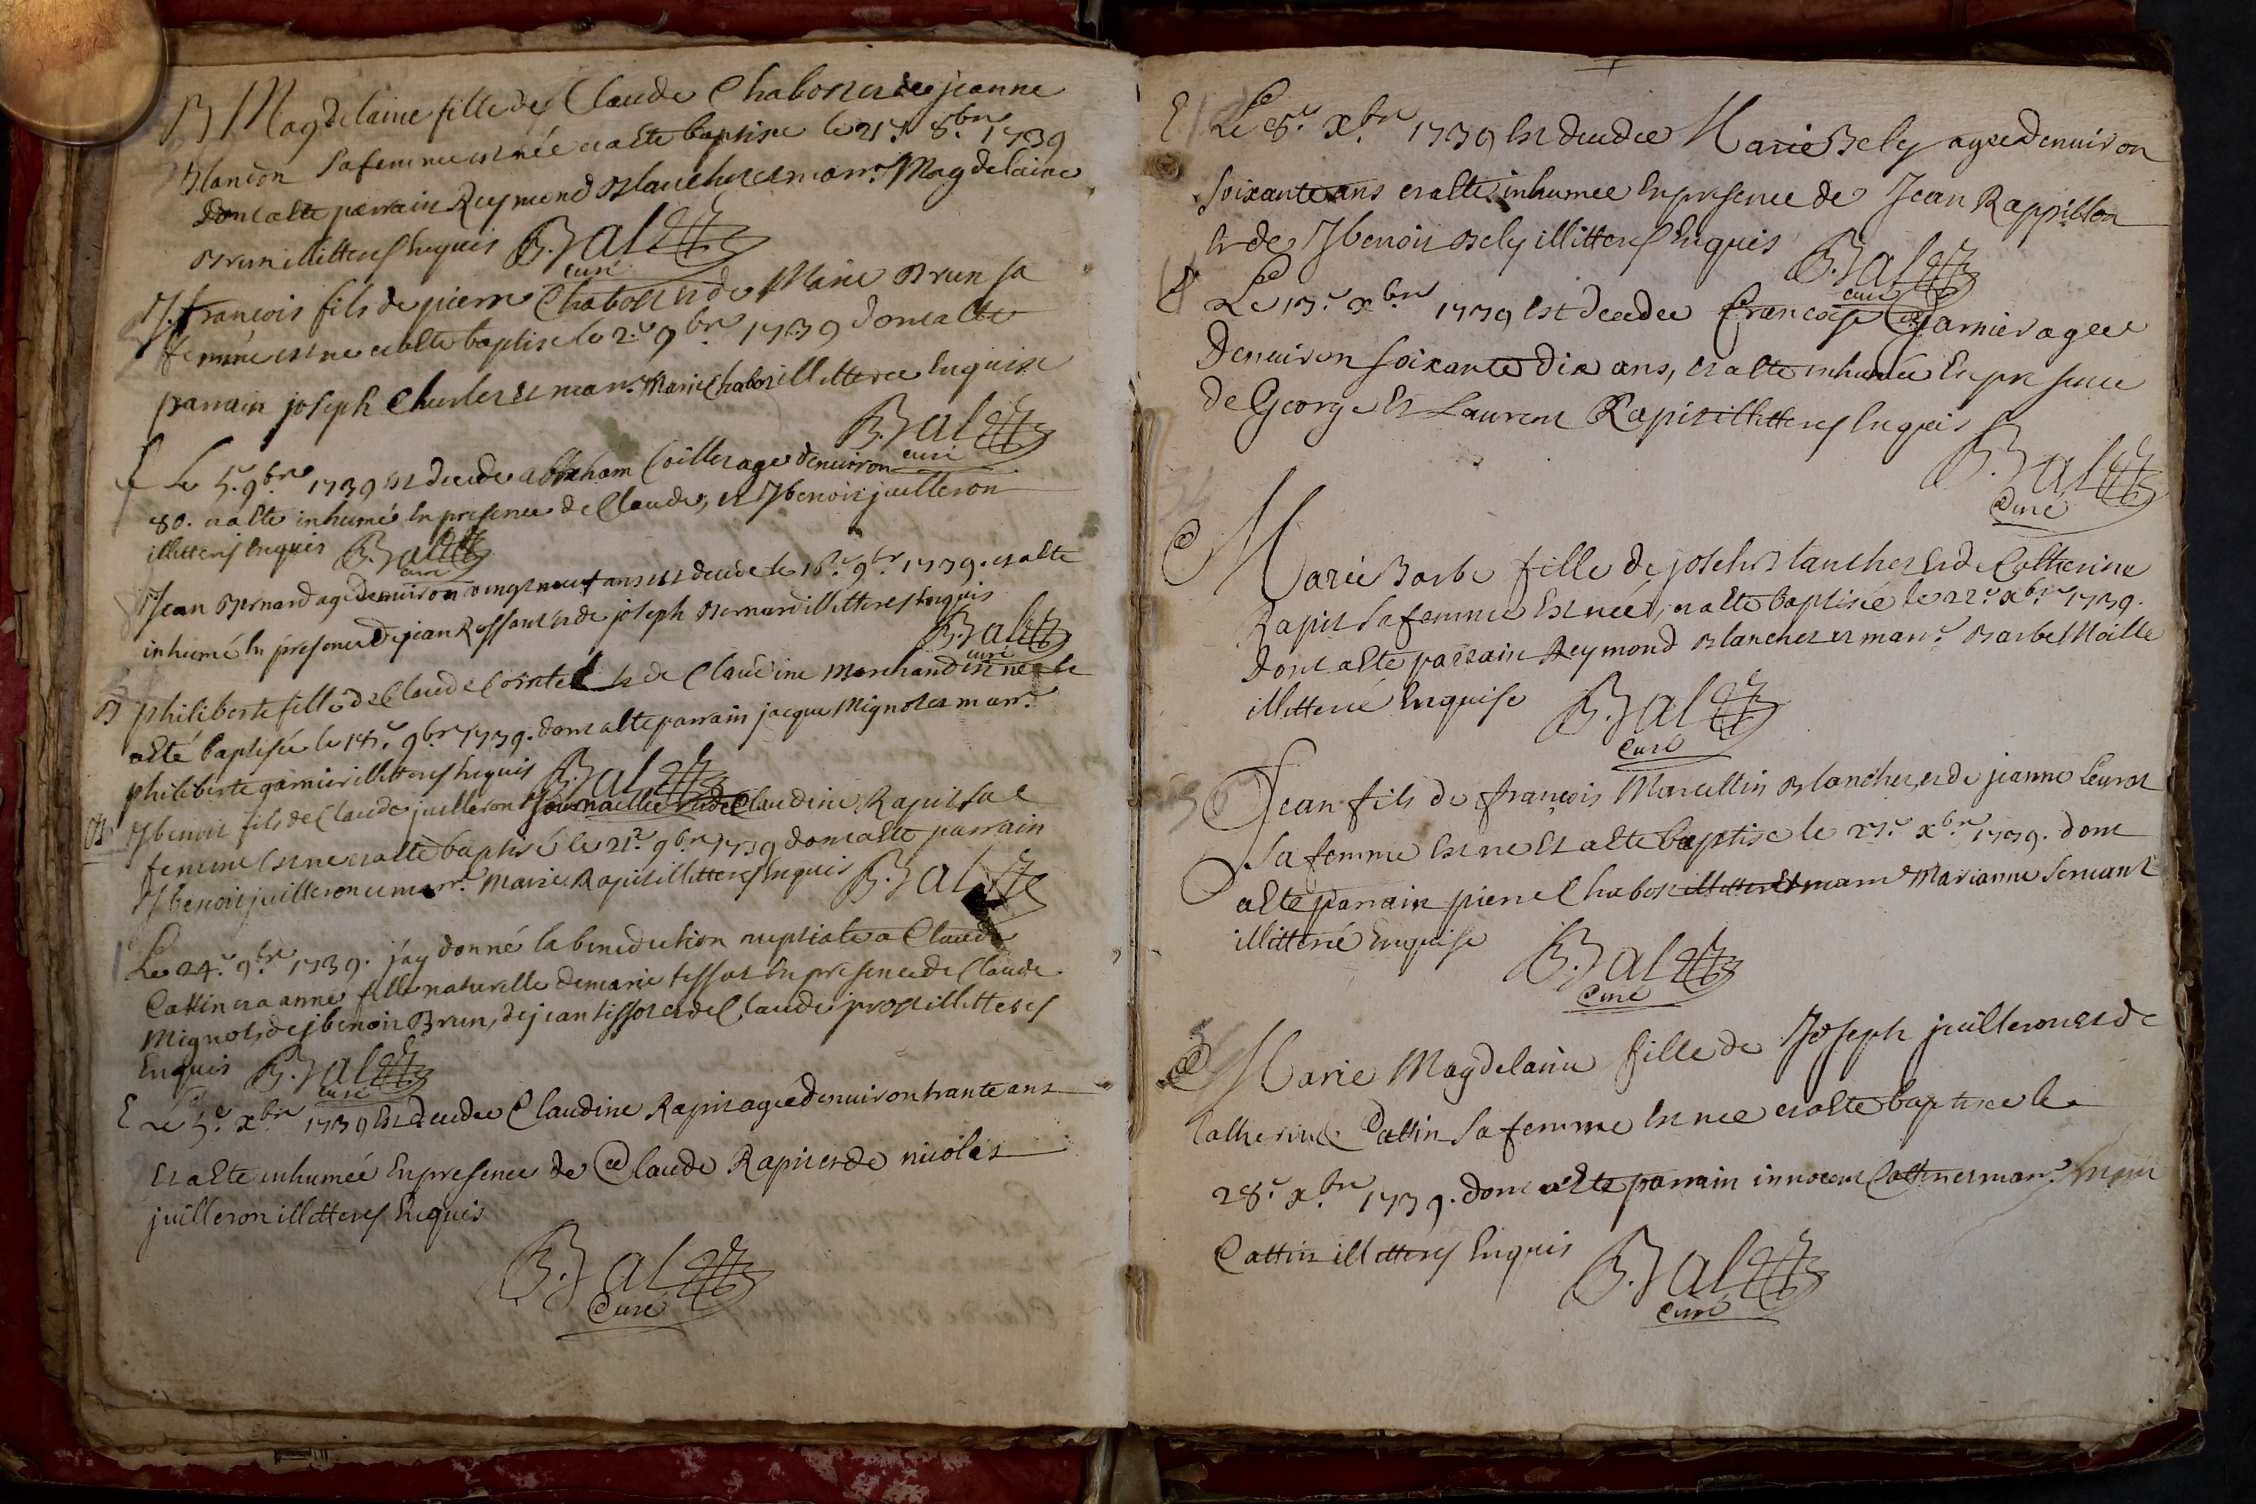 B Magdelaine fille de Claude Chabot et de jeanne
Blandon sa femme est née et a Ete baptise le 21e 8bre 1739
dont a Ete parrain Reymond Blanchet et marr. Magdelaine
Brun illitteres Enquis B. Balt
curé
françois fils de pierre Chabot et de Marie Brun sa
femme est ne et a Ete baptise le 2e 9bre 1739 dont a Ete
parrain joseph Charles et marr. Marie Chabot illitteree Enquise
B. Balt
curé
Le 5e 9bre 1739 est decede abraham age d'environ
80. et a Ete inhumé En presence de Claude, et Jbenoit juilleron
illitteres Enquis B. Balt
curé
Jean Bernard age d'environ vingt neuf ans est decede le 16e 9bre 1739. et a Ete
inhumé En présence de jean et de joseph Bernard illitteres Enquis
B. Balt
curé
B philiberte fille de Claude Cointet Et de Claudine Marchand est ne Et
a Eté baptisée le 17e 9bre 1739. dont a Ete parrain jacque Mignot et marr.
philiberte garnier illitteres Enquis B. Balt
B Jbenoit fils de Claude juilleron et de Claudine Rapit sa
femme Est ne et a Ete baptisé le 21e 9bre 1739 dont a Ete parrain
Jbenoit juilleron et marr. Marie Rapit illitteres Enquis B. Balt
Le 24e 9bre 1739. j'ay donné la benediction nuptiale a Claude
Cattin et a anne fille naturelle de marie tissot En presence de Claude
Mignot, de jbenoit Brun, de jean tissot et de Claude prost illitteres
Enquis B. Balt
curé
E Le 5e xbre 1739 Est decedee Claudine Rapit agée d'environ trante ans
Et a Ete inhumée En presence de Claude Rapit et de nicolas
juilleron illitteres Enquis
B. Balt
Curé
E Le 8e xbre 1739 Est decedee Marie Bely agée d'environ
soixante ans et a Ete inhumee En presence de Jean Rappillon
Et de Jbenoit Bely illitteres Enquis B. Balt
curé
E Le 13e xbre 1739 Est decedee francoise Garnier agee
d'environ soixante dix ans, et a Ete inhumée En presence
de George Et Laurent Rapit illitteres Enquis
B. Balt
Curé
Marie Barbe fille de joseh Blanchet Et de Catherine
Rapit sa femme Est née, et a Ete baptisée le 22e xbre 1739.
dont a Ete parrain Reymond Blanchet et marr. Barbe Maille
illitteré Enquise B. Balt
Curé
Jean fils de françois Marcellin Blanchet, et de jeanne
sa femme Est ne Et a Ete baptise le 27e xbre 1739. dont
a Ete parrain pierre Chabot Et marr Marianne servant
illitteré Enquise B. Balt
Curé
Marie Magdelaine fille de Joseph juilleron et de
Catherine Cattin sa femme Est nee et a Ete baptisee le
28e xbre 1739. dont a Ete parrain innocent Cattin et marr.
Cattin illitteres Enquis B. Balt
Curé